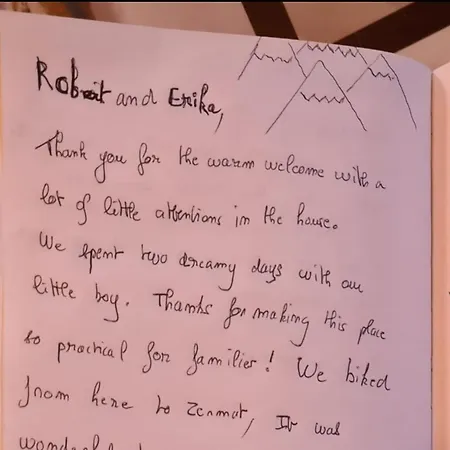 Robert and Erika,
Thank you for the warm welcome with a
lot of little attentions in the house.
We spent two dreamy days with our
little boy. Thanks for making this place
so practical for families! We biked
from here to Zermat, It was